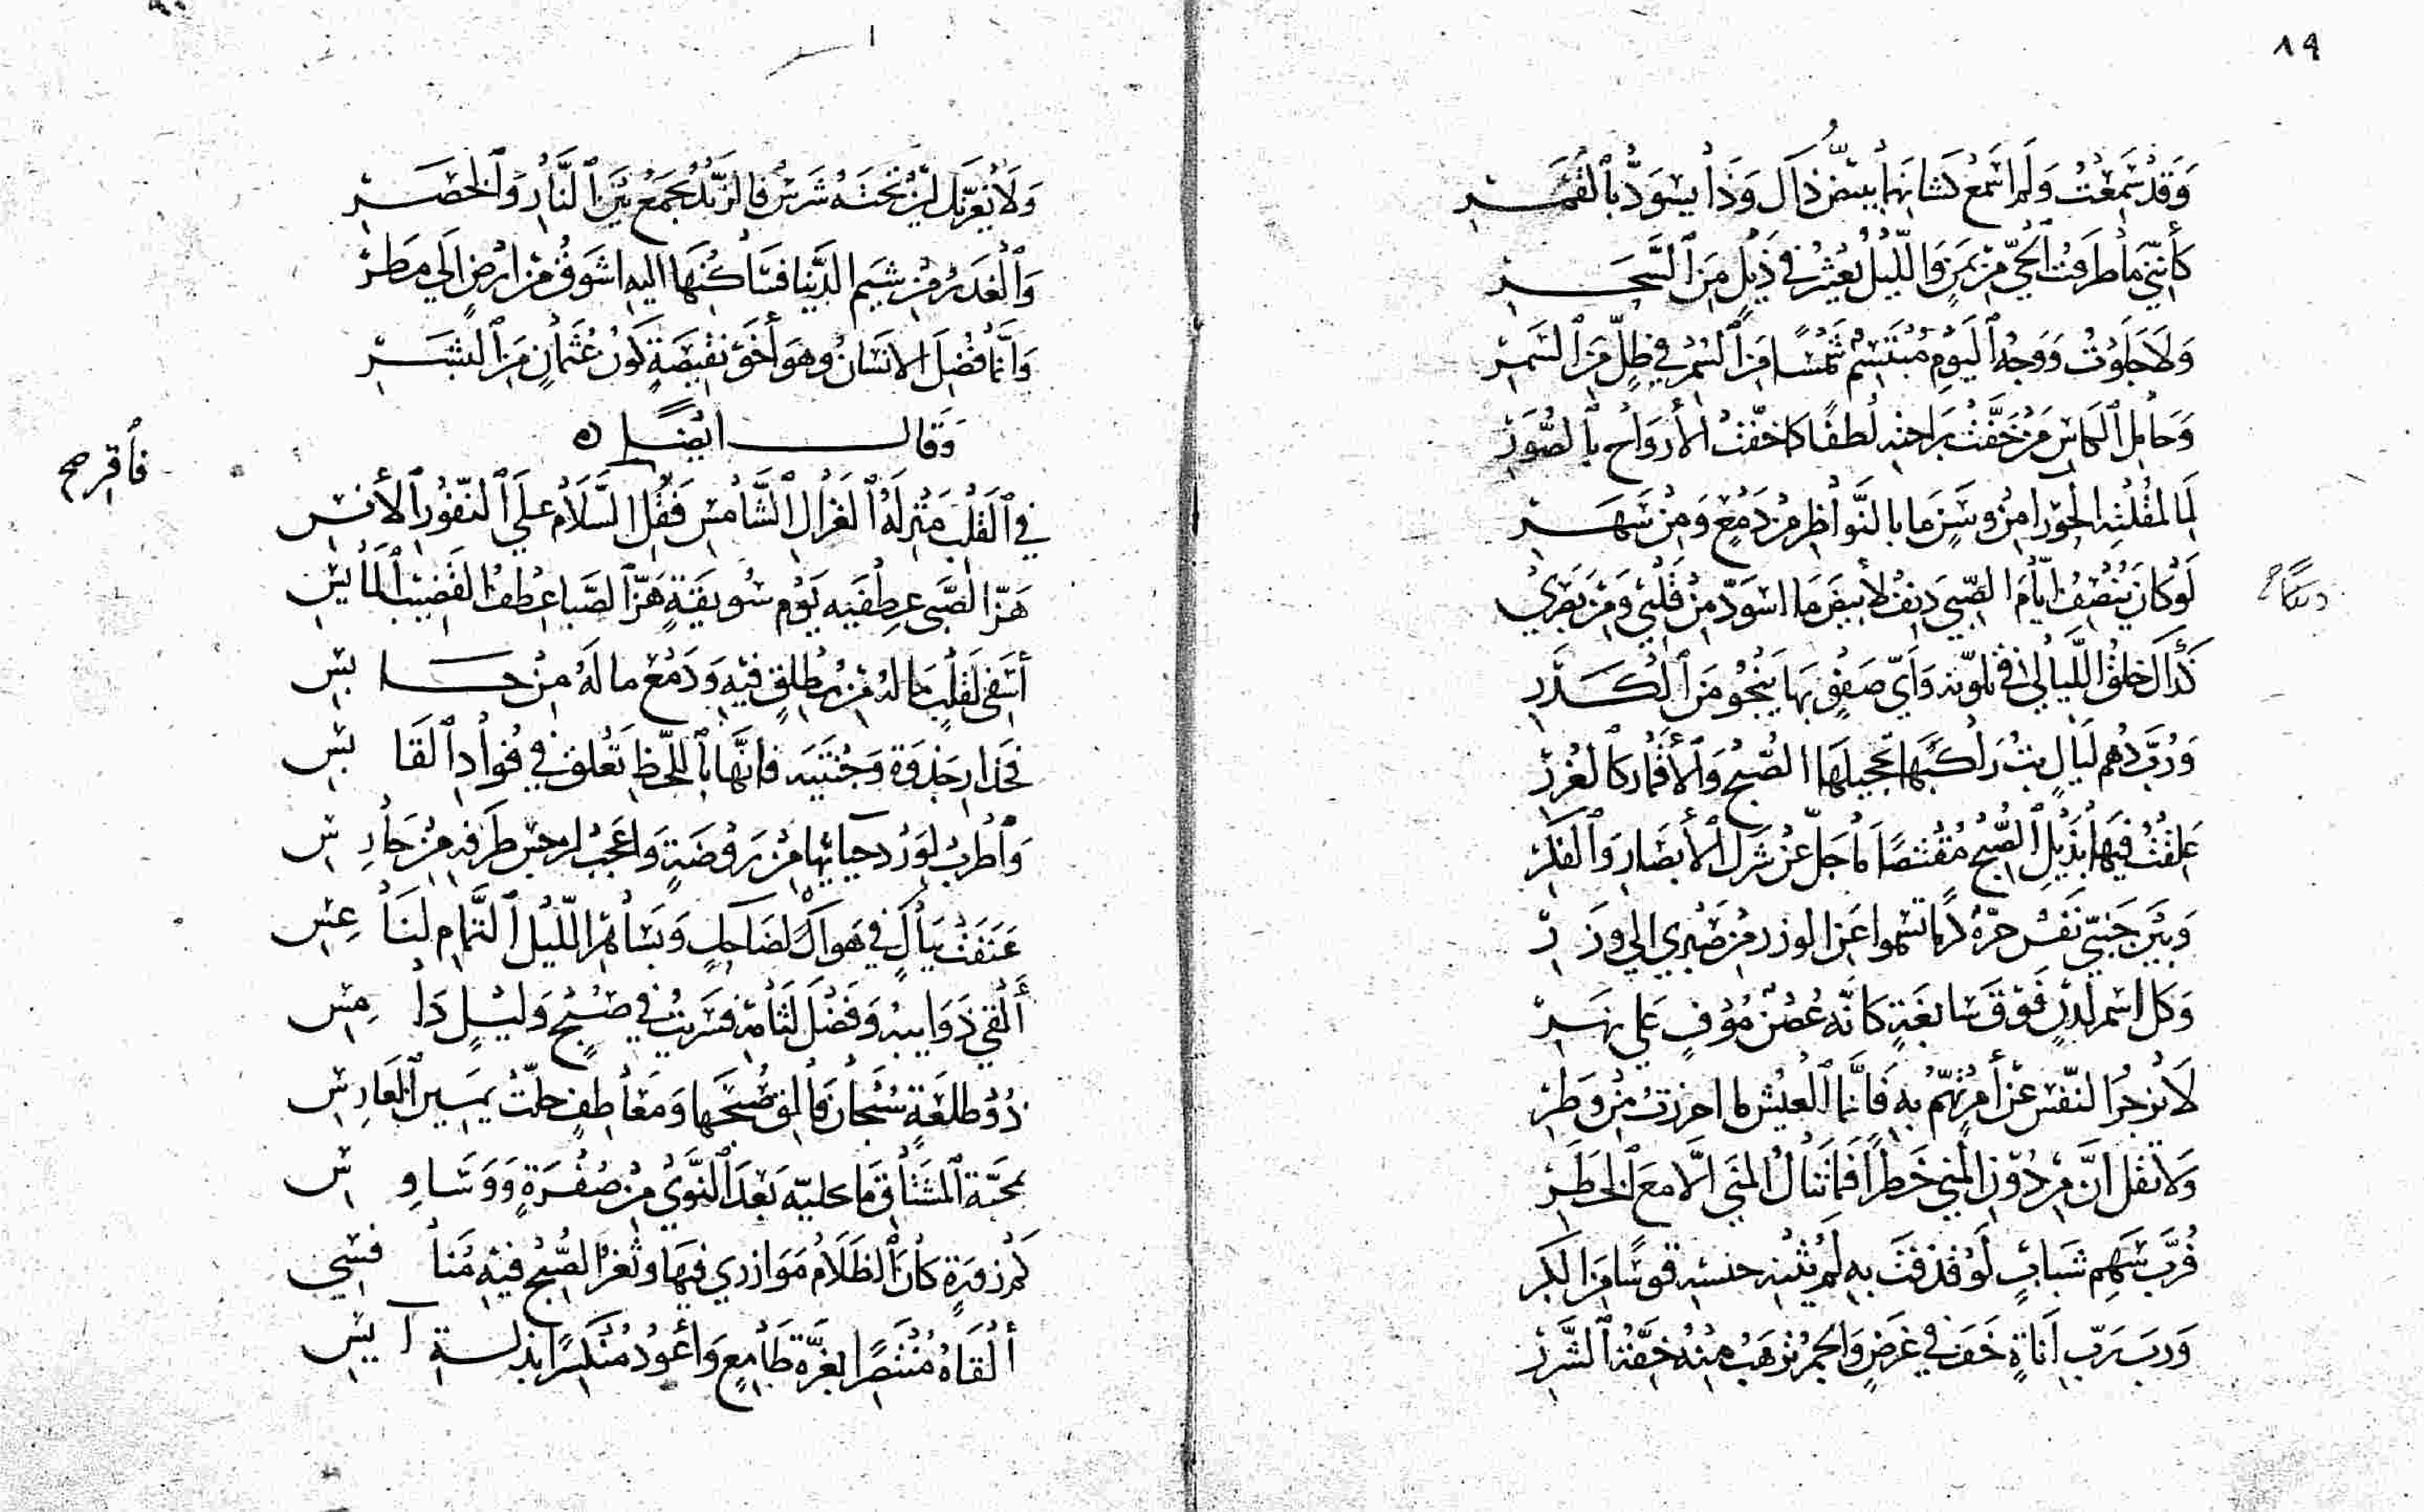 ٨٩
وَقَدْ سَمِعْتُ وَلَم اسْمَع كَشانِهما بيبيضّ ذاكَ وَذا يسْوَدُّ بِالقُمُــرِ
كأَنَّنِي ما طَرَقْتُ الحَيَّ مِنْ يَمَنٍ وَاللَّيْلُ يَعْثُرُ في ذَيْلٍ مِنَ السَّحَــرِ
وَلا جَلَوتُ وَوَجْهُ اليَوْمِ مُبْتَسِمٌ شَمْسًا مِنَ السُّمْرِ في ظِلٍّ مِنَ السَّمرِ
وَحامِلِ الكاسِ مَنْ خَفَّتْ بِراحتِهِ لُطْفًا كما خَفَّت الأَرْوَاحِ بِالصُّوَرِ
لَمَا لمُقْلَتِهِ الحَوْرا مِنْ وَسَنٍ ما بالنَّواظِرِ مِنْ دَمْعٍ وَمِنْ سَهَــرِ
لَوْ كانَ يُنْصِفُ ايَّامَ الصِّبَى دَنِفٌ لأبيضَّ ما اسْوَدَّ مِنْ قَلْبِي وَمِنْ بَصَرِي
كَذاكَ خلقُ اللَّيالي في تلوّنه وَأيّ صَفْوٍ بها يَنْجُو مِنَ الكَــدَرِ
وَرُبَّ دُهْمِ لَيالٍ بتُّ راكِبَها تحجيلها الصُّبحُ وَالأَقْمارُ كالغُرَرِ
عَلِقْتُ فيها بِذَيْلِ الصُّبْحِ مُقْتَنِصًا لما جَلَّ عَنْ شَرَكِ الأَبْصارِ وَالفِكَرِ
وَبَيْنَ جَنْبيّ نَفْسٌ حرّةٌ كرمًا تسْموا عَن الوزر مِنْ صَبْري الي وَزَرِ
وَكل اسْمر لَدْنٍ فَوْقَ سابغَةٍ كانّه غُصُنٌ مُوْفٍ علي نهــرِ
لا تزجُر النّفسَ عَنْ أمرٍ تهُمُّ بهِ فَانَّما العَيْش ما احرزتَ مِنْ وَطَرِ
وَلا تقُل انَّ مِنْ دُوْنِ المُنى خَطَرًا فَما تَنالُ المُنَى الّا مَعَ الخَطَرِ
فَرُبَّ سَهْمِ شَبابٍ لَوْ قذفْتَ بهِ لَم يُثنِه قوسًا مِنَ الكِبَرِ
وَربَ رَبِّ اَناةٍ خَفَّ في غَرَضٍ وَالجمْرُ تذهبُ مِنْهُ خِفَّةُ الشَّرَرِ
وَلا يَغُرّنكَ لينٌ تحْتَهُ شَرَسٌ فالزّنْدُ يجمَعُ بَيْنَ النَّارِ وَالخَصَــرِ
وَالغَدْرُ مِنْ شِيَمِ الدّنيا فسَاكِنُها اليهِ اشوَقُ مِنْ ارْضٍ الَي مَطَرِ
وَانَّما فُضِّلَ الانْسَانُ وهوَ أَخُو نَقِيْصَةٍ كَوْنُ عُثْمانٍ مِنَ البَشَــرِ
وَقالَ ايْضًا
فأقرِ صح
في القَلْبِ مَنْزِلَةُ الغَزالِ الشَّامِسِ فَقُلِ السَّلامُ علَي النّفُورِ الأَنسِ
هَزّ الصِّبَى عِطفَيْهِ يَوْم سُوَيقَةٍ هَزَّ الصَّبا عِطْفَ القَضِيْبِ المائِسِ
أَسَفِي لقَلْبٍ ما لهُ مِنْ مطْلِقٍ فيْهِ وَدَمْعٍ ما لَهُ مِنْ حــابسِ
فحَذارِ جَذوَةَ وَجْنَتَيْهِ فانَّها بِاللَّحْظِ تَعْلَقُ في فُؤادِ القابِسِ
وَاطربْ لوَرْدِ مِنْ رَوْضَةٍ وَاعجَبْ لنرجسِ طَرفِهِ مِنْ حارِسِ
عَنَفَتْ بِبَاكٍ في هَواكَ لِضاحِكٍ وَبِسَاهِرِ اللَّيْلِ التّمامِ لناعِسِ
أَلْقَي ذَوايبهُ وَفَضْلَ لثامِهِ فَسَريتُ في صُبْحٍ وَليْلٍ دامِسِ
ذُوْ طلعَةٍ سُبْحانَ فالِقِ صُبْحِها وَمَعاطِفٍ جلّتْ يَمِيْنُ الغارِسِ
كَم زَوْرَةٍ كانَ الظَلامُ مُوَازري فِيها وثَغْرُ الصُّبْحِ فيهِ مُنافِسِي
أَلْقاهُ مُنْتَصِرًا بِعزّة طامِعٍ وَأعُودُ مُنْكَسِرًا بِذلــةِ آيسِ